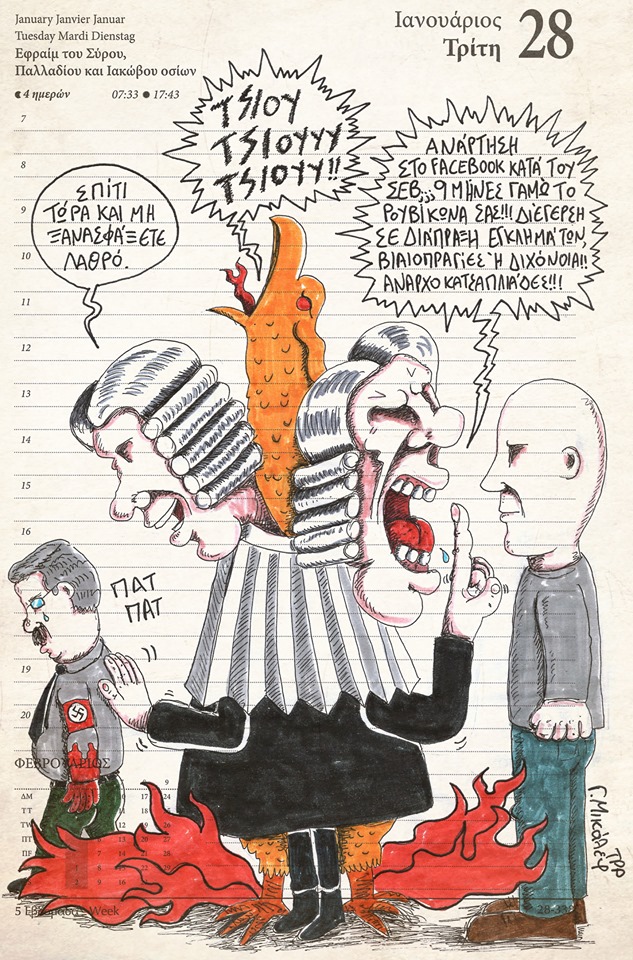 January Janvier Januar
Tuesday Mardi Dienstag
Εφραίμ του Σύρου,
Παλλαδίου και Ιακώβου οσίων
4 ημερών 07:33 ● 17:43
Ιανουάριος
Τρίτη
28
7
8
9
10
11
12
13
14
15
16
19
20
ΤΣΙΟΥ
ΤΣΙΟΥΥΥ
ΤΣΙΟΥΥ!!
ΣΠΙΤΙ
ΤΩΡΑ ΚΑΙ ΜΗ
ΞΑΝΑΣΦΆΞΕΤΕ
ΛΑΘΡΟ.
ΑΝΆΡΤΗΣΗ
ΣΤΟ FACEBOOK ΚΑΤΆ ΤΟΥ
ΣΕΒ,,, 9 ΜΗΝΕΣ ΓΑΜΩ ΤΟ
ΡΟΥΒΙΚΩΝΑ ΣΑΣ!!! ΔΙΕΓΕΡΣΗ
ΣΕ ΔΙΆΠΡΑΞΗ ΕΓΚΛΗΜΆΤΩΝ,
ΒΙΑΙΟΠΡΑΓΊΕΣ Ή ΔΙΧΌΝΟΙΑ!!
ΑΝΑΡΧΟΚΑΤΣΑΠΛΙΆΔΕΣ!!!
ΠΑΤ
ΠΑΤ
ΦΕΒΡΟΥΑΡΙΟΣ
ΔΜ
ΤΤ
TW
ΠΤ
ΠF
5 Week
28-33